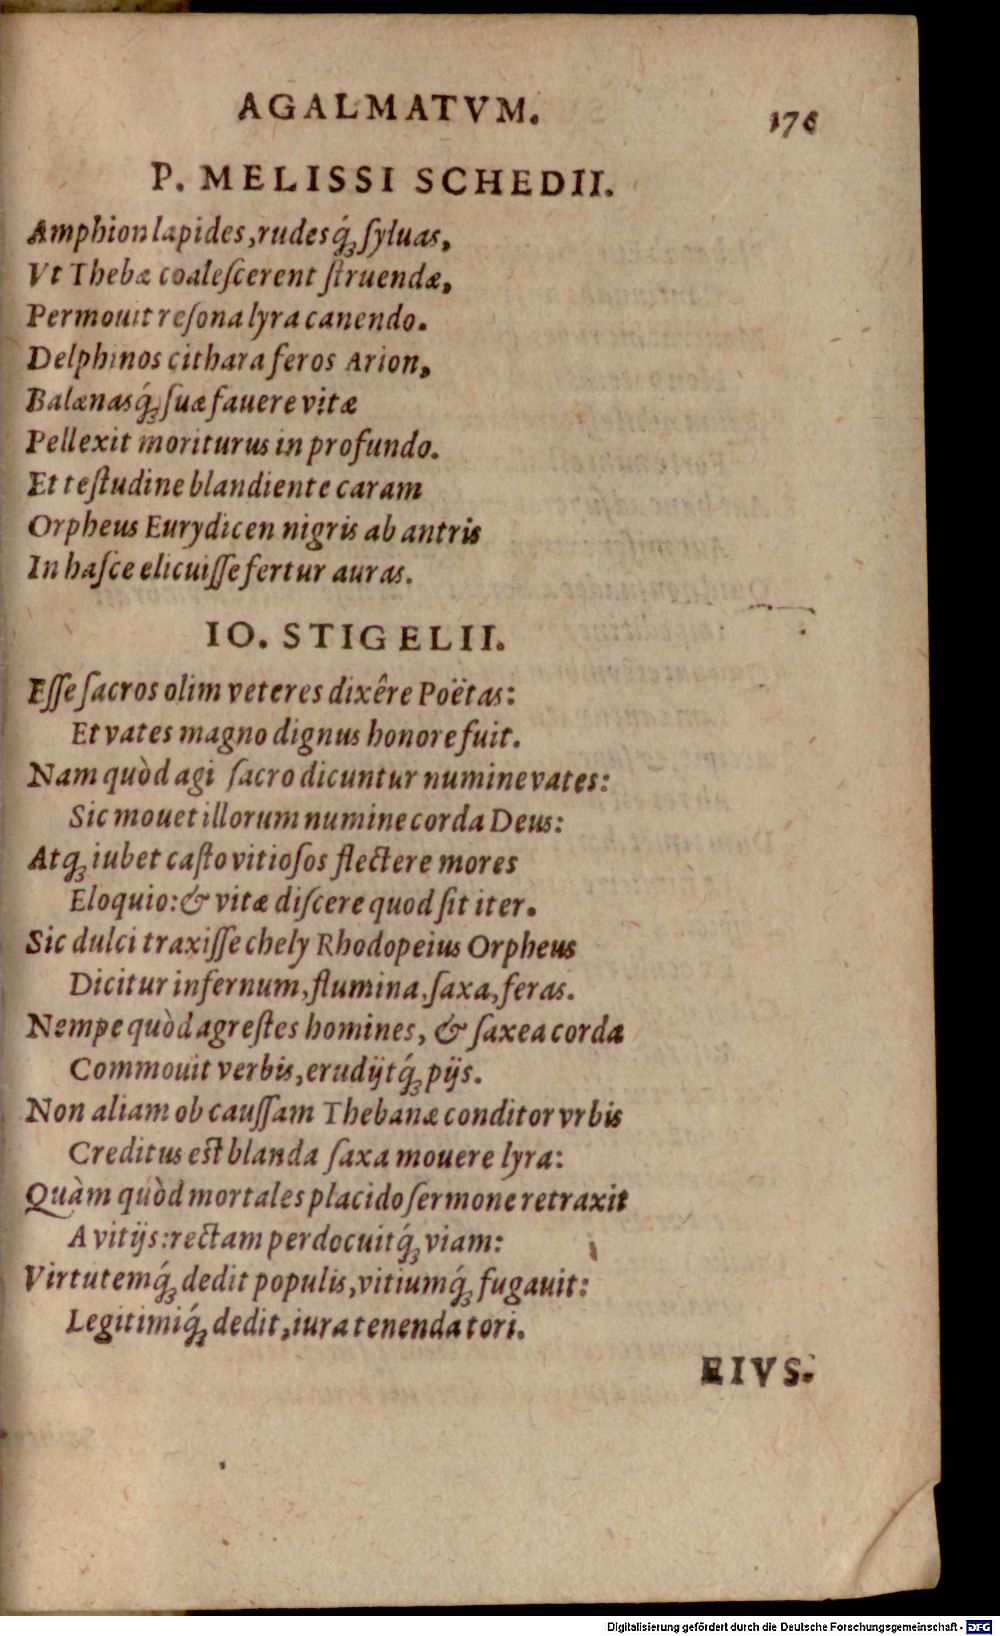 AGALMATVM.
176
P. MELISSI SCHEDII.
Amphion lapides, rudesq́ꝫ ſyluas,
Vt Thebæ coaleſcerent ſtruendæ,
Permouit reſona lyra canendo.
Delphinos cithara feros Arion,
Balænasq́ꝫ ſuæ fauere vitæ
Pellexit moriturus in profundo.
Et teſtudine blandiente caram
Orpheus Eurydicen nigris ab antris
In haſce elicuiſſe fertur auras.
IO. STIGELII.
Eſſe ſacros olim veteres dixêre Poëtas:
Et vates magno dignus honore fuit.
Nam quòd agi ſacro dicuntur numine vates:
Sic mouet illorum numine corda Deus:
Atqꝫ iubet caſto vitioſos flectere mores
Eloquio: & vitæ diſcere quod ſit iter.
Sic dulci traxiſſe chely Rhodopeius Orpheus
Dicitur infernum, flumina, ſaxa, feras.
Nempe quòd agreſtes homines, & ſaxea corda
Commouit verbis, erudijtq́ꝫ pijs.
Non aliam ob cauſſam Thebanæ conditor vrbis
Creditus eſt blanda ſaxa mouere lyra:
Quàm quòd mortales placido ſermone retraxit
A vitijs: rectam perdocuitq́ꝫ viam:
Virtutemq́ꝫ dedit populis, vitiumq́ꝫ fugauit:
Legitimiq́ꝫ dedit, iura tenenda tori.
EIVS.
Digitalisierung gefördert durch die Deutsche Forschungsgemeinschaft - DFG